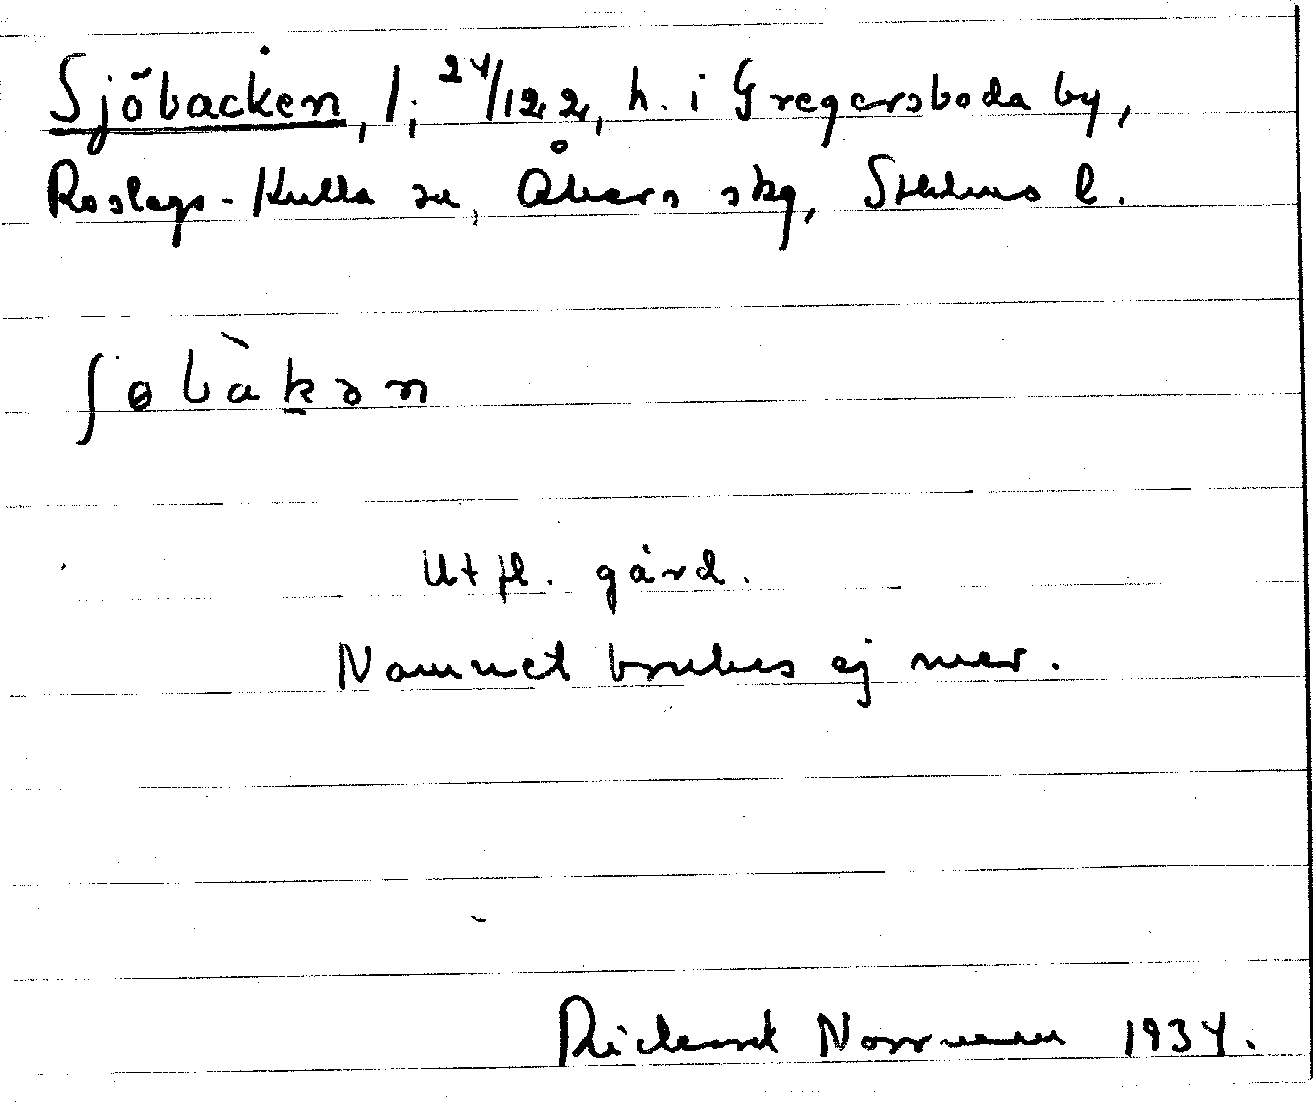 Sjöbacken, 1; 24/122, h. i Gregersboda by,
Roslags-Kulla sn, Åkers skg, Sthlms l.
ʃɵbàkən
Utfl. gård.
Namnet brukes ej mer.
Rickard Norrman 1934.